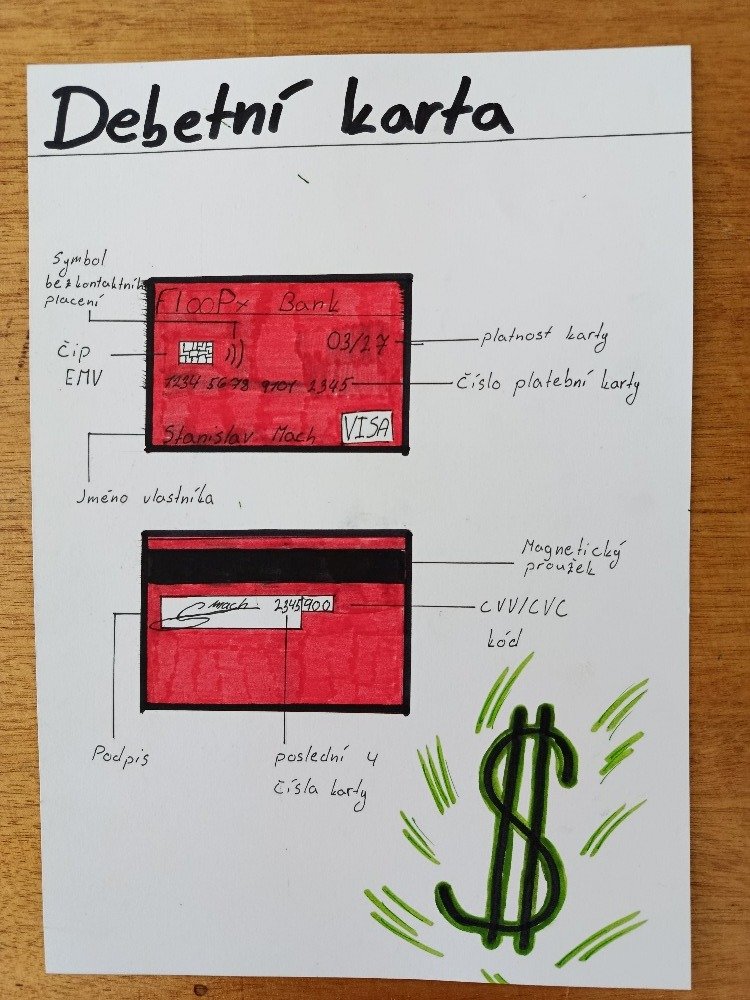 Debetní karta
Symbol
bezkontaktního
placení
FlooPy Bank
03/27
platnost karty
čip
EMV
1234 5678 9101 2345
číslo platební karty
Stanislav Mach
VISA
Jméno vlastníka
Magnetický
proužek
Smach 2345 900
CVV/CVC
kód
Podpis
poslední 4
čísla karty
$